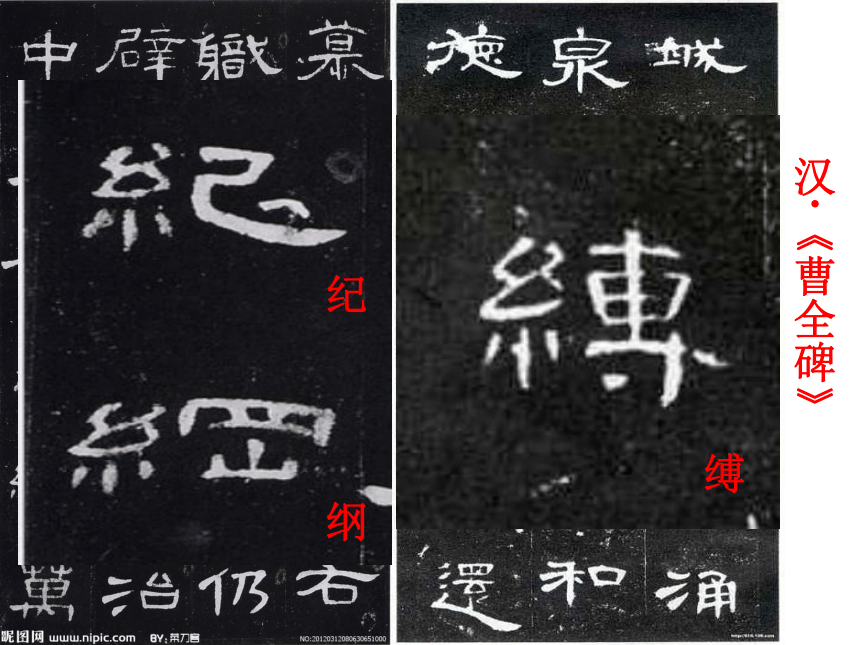 中 辟 職 慕
紀
纪
綱
纲
萬 治 仍 右
昵图网 www.nipic.com BY:菜刀客 NO:20120312080630651000
德 泉 城
縛
缚
還 和 涌
汉·《曹全碑》